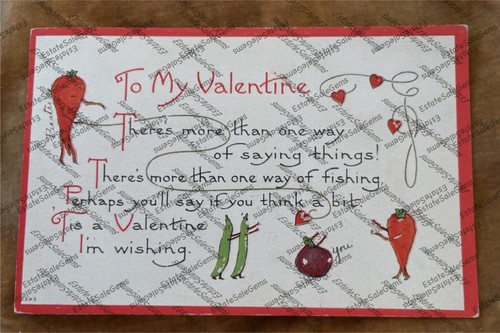 To My Valentine
There's more than one way
of saying things!
There's more than one way of fishing,
Perhaps you'll say if you think a bit,
Tis a Valentine
I'm wishing.
you
EstateSaleGems